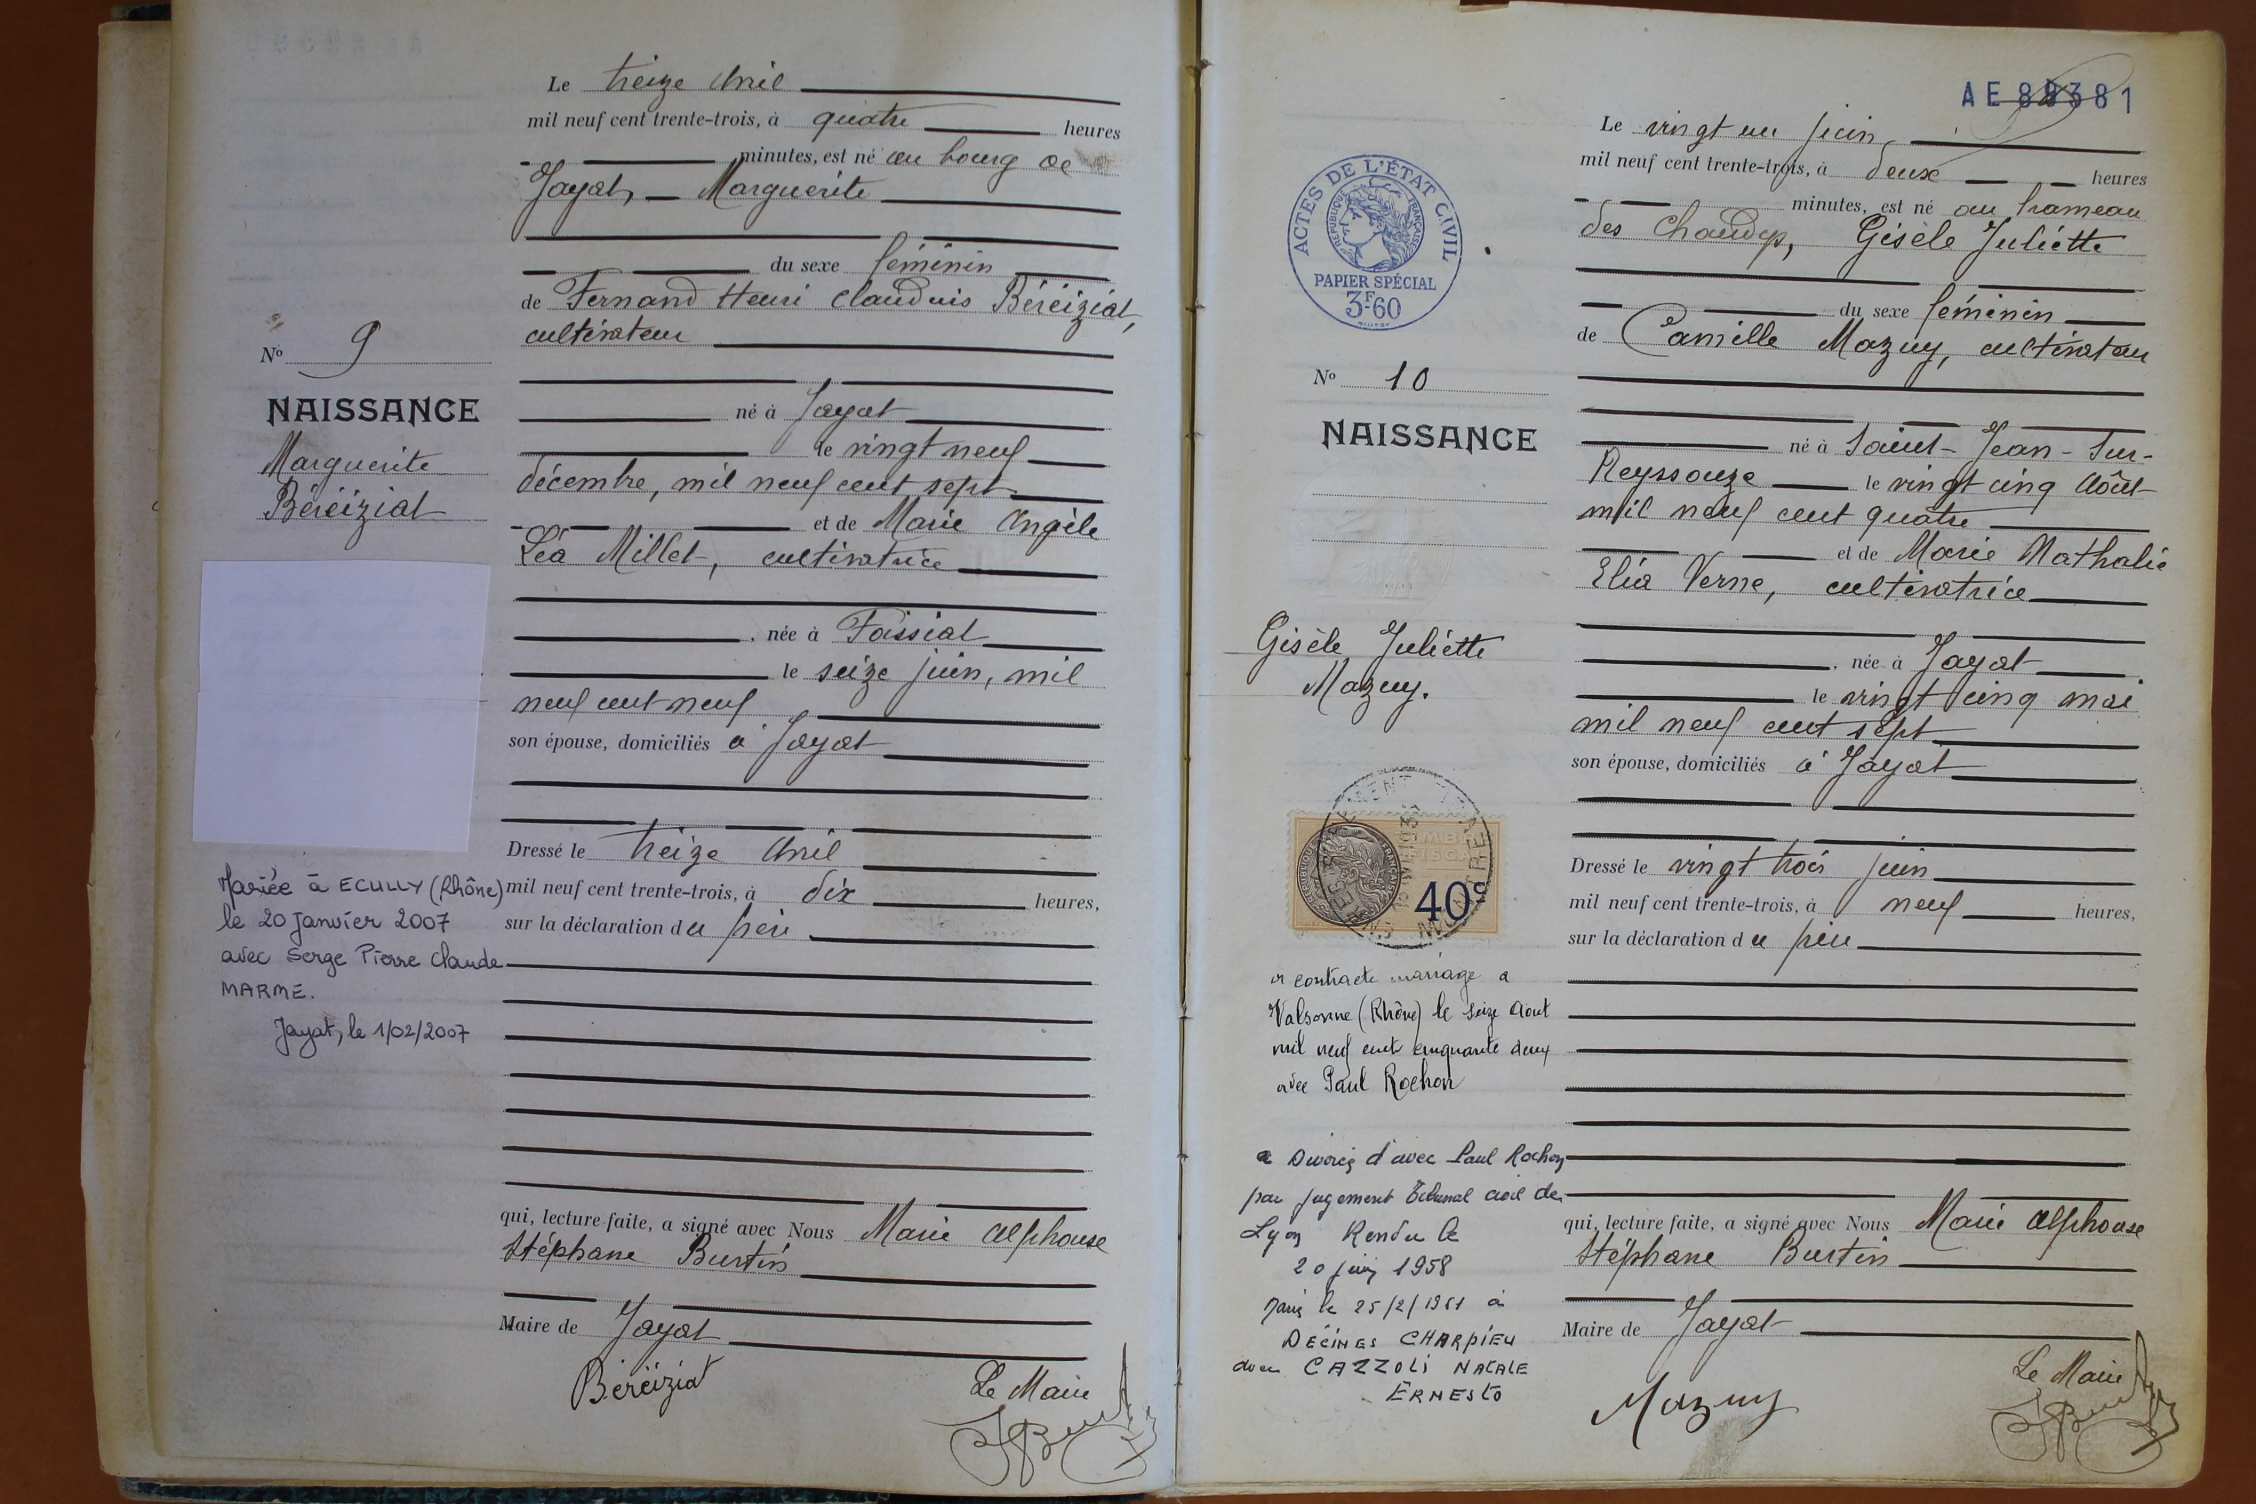 Le treize Avril
mil neuf cent trente-trois, à quatre heures
minutes, est né au bourg de
Jayat, Marguerite
du sexe féminin
de Fernand Henri Claudius Béréiziat,
cultivateur
né à Jayat
le vingt neuf
décembre, mil neuf cent sept
et de Marie Angèle
Léa Millet, cultivatrice
, née à Foissiat
le seize juin, mil
neuf cent neuf
son épouse, domiciliés à Jayat
Dressé le treize Avril
mil neuf cent trente-trois, à dix heures,
sur la déclaration du père
qui, lecture faite, a signé avec Nous Marie Alphonse
Stéphane Burtin
Maire de Jayat
Béréiziat
Le Maire
N° 9
NAISSANCE
Marguerite
Béréiziat
Mariée à ECULLY (Rhône)
le 20 janvier 2007
avec Serge Pierre Claude
MARME.
Jayat, le 1/02/2007
AE 88381
Le vingt un juin
mil neuf cent trente-trois, à deux heures
minutes, est né au hameau
des Chaudys, Gisèle Juliette
du sexe féminin
de Camille Mazuy, cultivateur
né à Saint-Jean-sur-
Reyssouze le vingt cinq Août
mil neuf cent quatre
et de Marie Nathalie
Elia Verne, cultivatrice
, née à Jayat
le vingt cinq mai
mil neuf cent sept
son épouse, domiciliés à Jayat
Dressé le vingt trois juin
mil neuf cent trente-trois, à neuf heures,
sur la déclaration du père
qui, lecture faite, a signé avec Nous Marie Alphonse
Stéphane Burtin
Maire de Jayat
Mazuy
Le Maire
ACTES DE L'ÉTAT CIVIL
RÉPUBLIQUE FRANÇAISE
PAPIER SPÉCIAL
3F60
N° 10
NAISSANCE
Gisèle Juliette
Mazuy.
TIMBRE
FISCAL
40c
a contracté mariage a
Valsonne (Rhône) le seize Aout
mil neuf cent cinquante deux
avec Paul Rochon
a Divorcé d'avec Paul Rochon
par jugement Tribunal civil de
Lyon Rendu le
20 juin 1958
Marié le 25/2/1961 à
DÉCINES CHARPIEU
avec CAZZOLI NATALE
ERNESTO